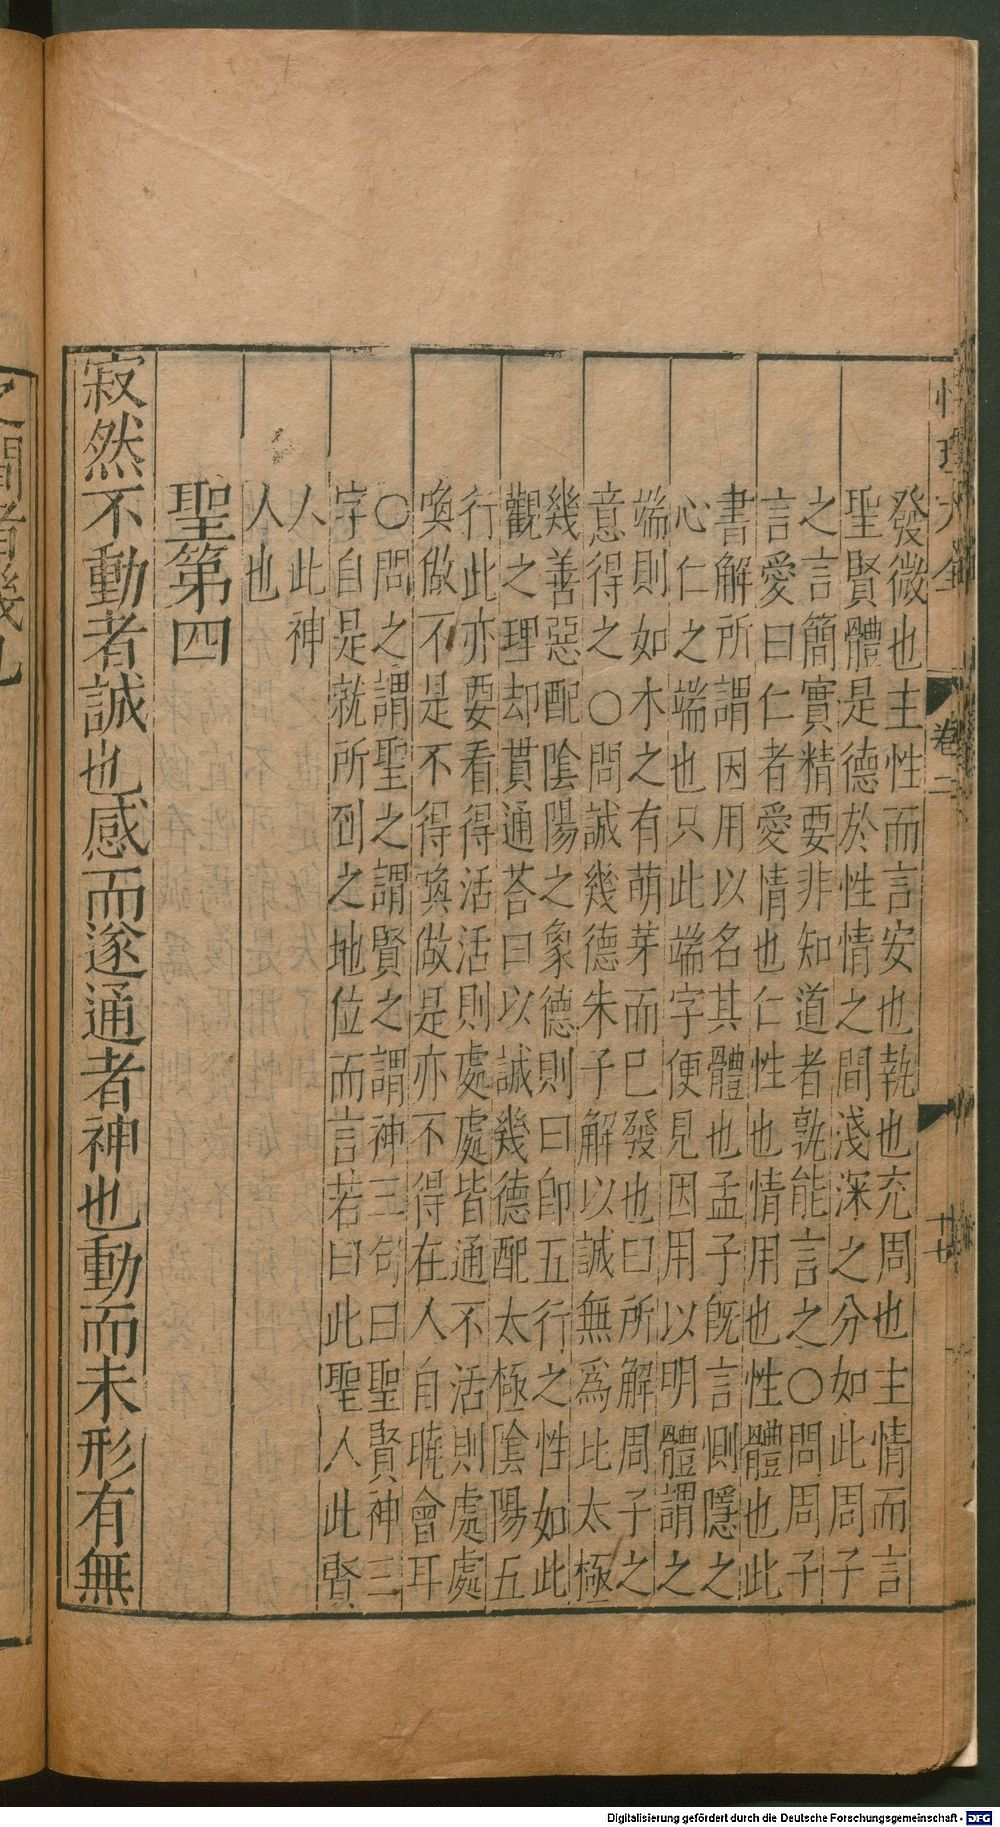 性理大全 卷二 廿七
發微也主性而言安也執也充周也主情而言
聖賢體是德於性情之間淺深之分如此周子
之言簡實精要非知道者孰能言之○問周子
言愛曰仁者愛情也仁性也情用也性體也此
書解所謂因用以名其體也孟子旣言惻隱之
心仁之端也只此端字便見因用以明體謂之
端則如木之有萌芽而已發也曰所解周子之
意得之○問誠幾德朱子解以誠無爲比太極
幾善惡配陰陽之象德則曰卽五行之性如此
觀之理却貫通荅曰以誠幾德配太極陰陽五
行此亦要看得活活則處處皆通不活則處處
喚做不是不得喚做是亦不得在人自曉會耳
○問之謂聖之謂賢之謂神三句曰聖賢神三
字自是就所到之地位而言若曰此聖人此賢
人此神
人也
聖第四
寂然不動者誠也感而遂通者神也動而未形有無
之間者幾也
Digitalisierung gefördert durch die Deutsche Forschungsgemeinschaft - DFG